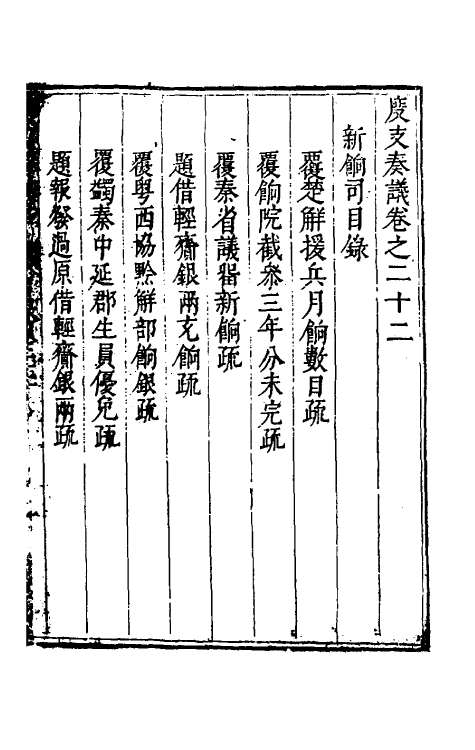 度支奏議卷之二十二
新餉司目錄
覆楚解援兵月餉數目疏
覆餉院截叅三年分未完疏
覆秦省議畱新餉疏
題借輕齎銀兩充餉疏
覆粤西協黔解部餉銀疏
覆蠲秦中延郡生員優免疏
題報發過原借輕齎銀兩疏